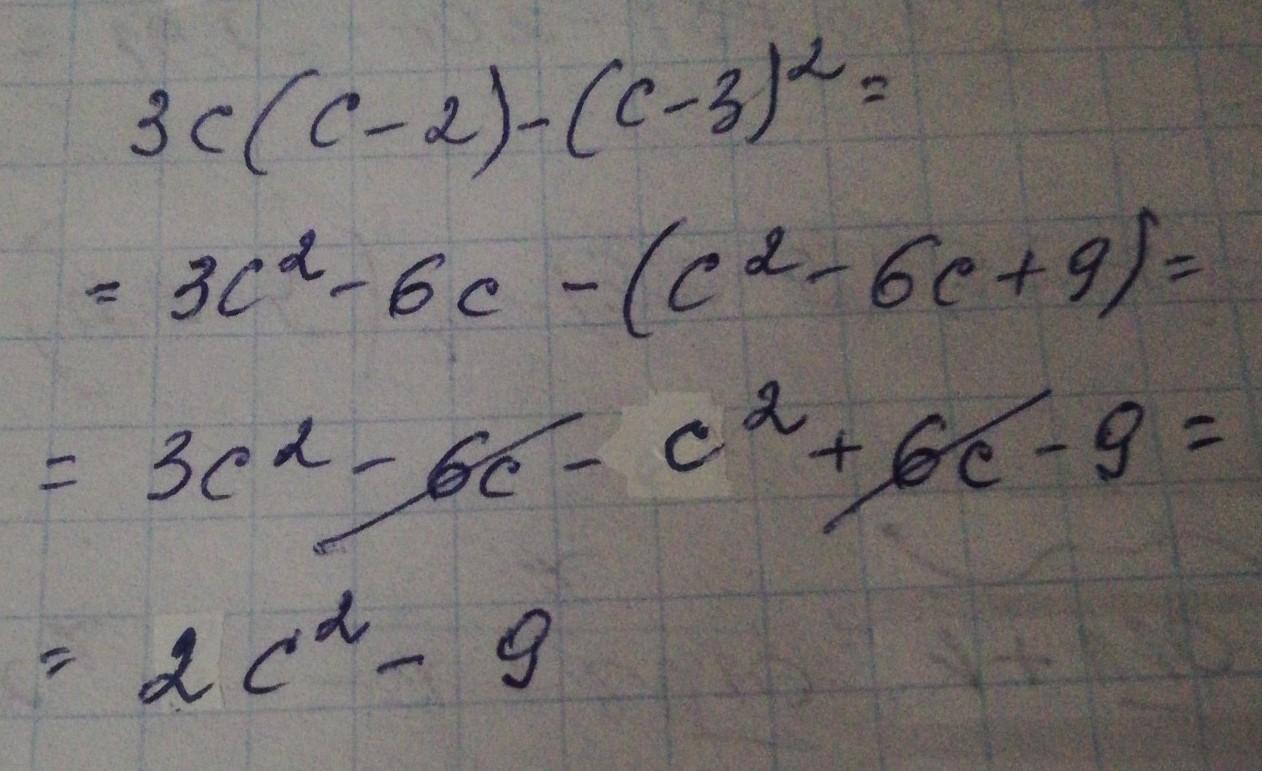 3c(c-2)-(c-3)²=
= 3c²-6c-(c²-6c+9)=
= 3c²-6c-c²+6c-9=
= 2c²-9